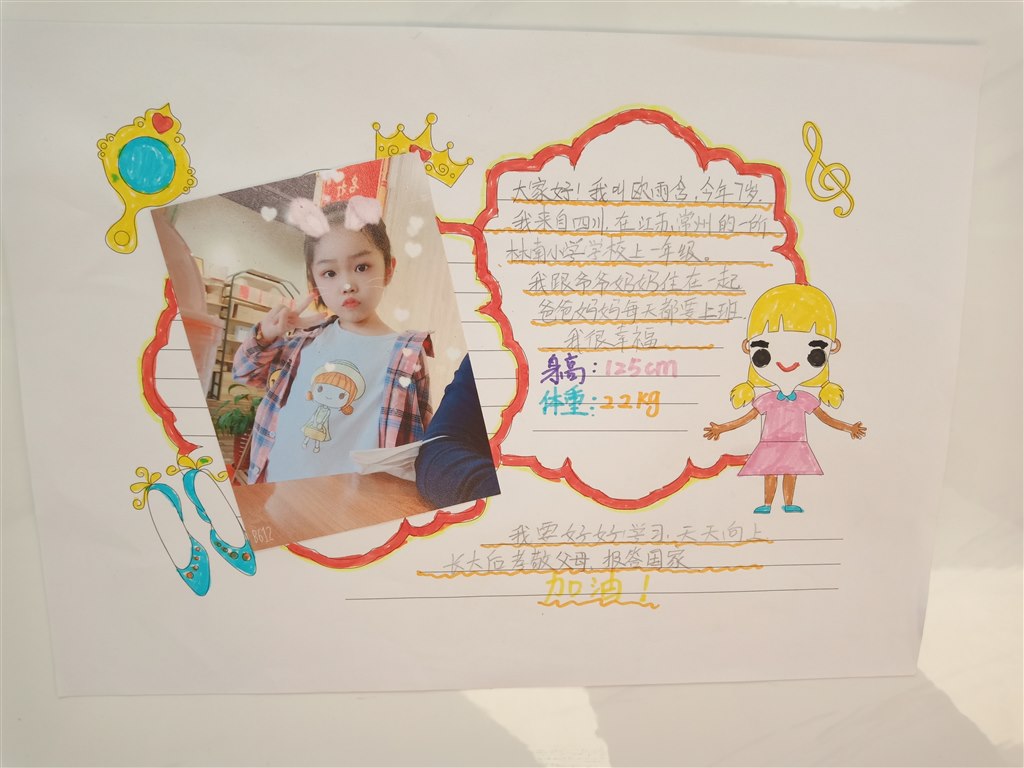 大家好！我叫欧雨含，今年7岁，
我来自四川，在江苏，常州的一所
林南小学学校上一年级。
我跟爷爷妈妈住在一起
爸爸妈妈每天都要上班，
我很幸福
身高：125cm
体重：22kg
我要好好学习，天天向上
长大后孝敬父母，报答国家
加油！
B612